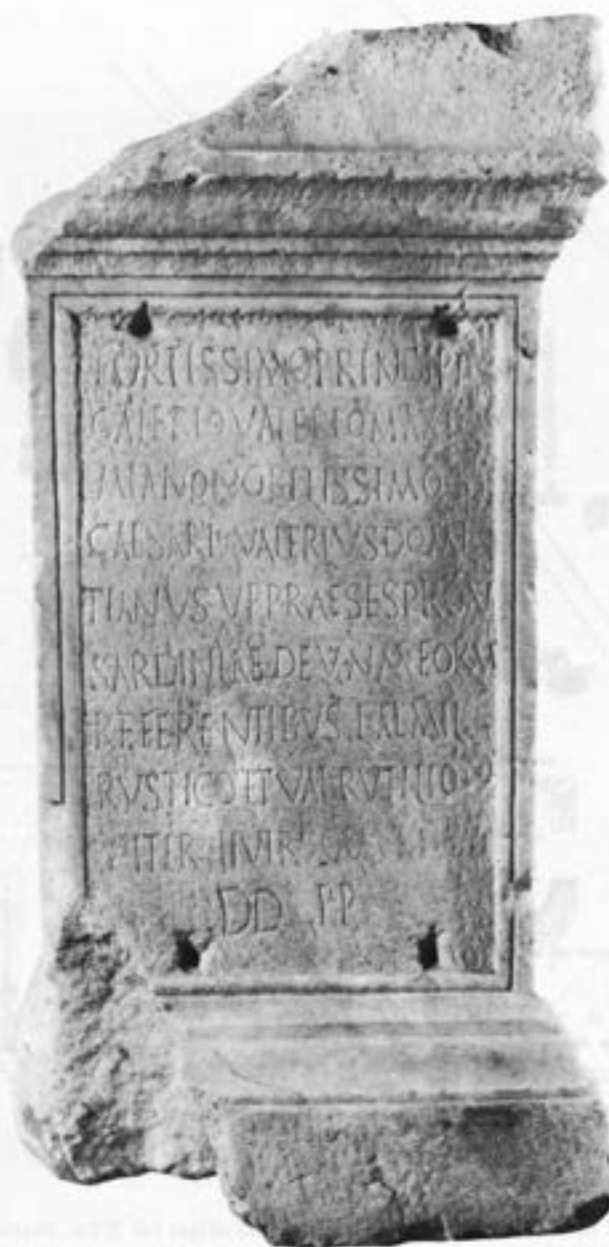 FORTISSIMO PRINCIPI
GALERIO VALERIO MAXI
MIANO
CAESARI VALERIVS DOMI
TIANVS V P PRAESES PROV
SARDINIAE DEV N M EORVM
REFERENTIBVS
RVSTICO ET VAL
ITER II VIR
DD PP